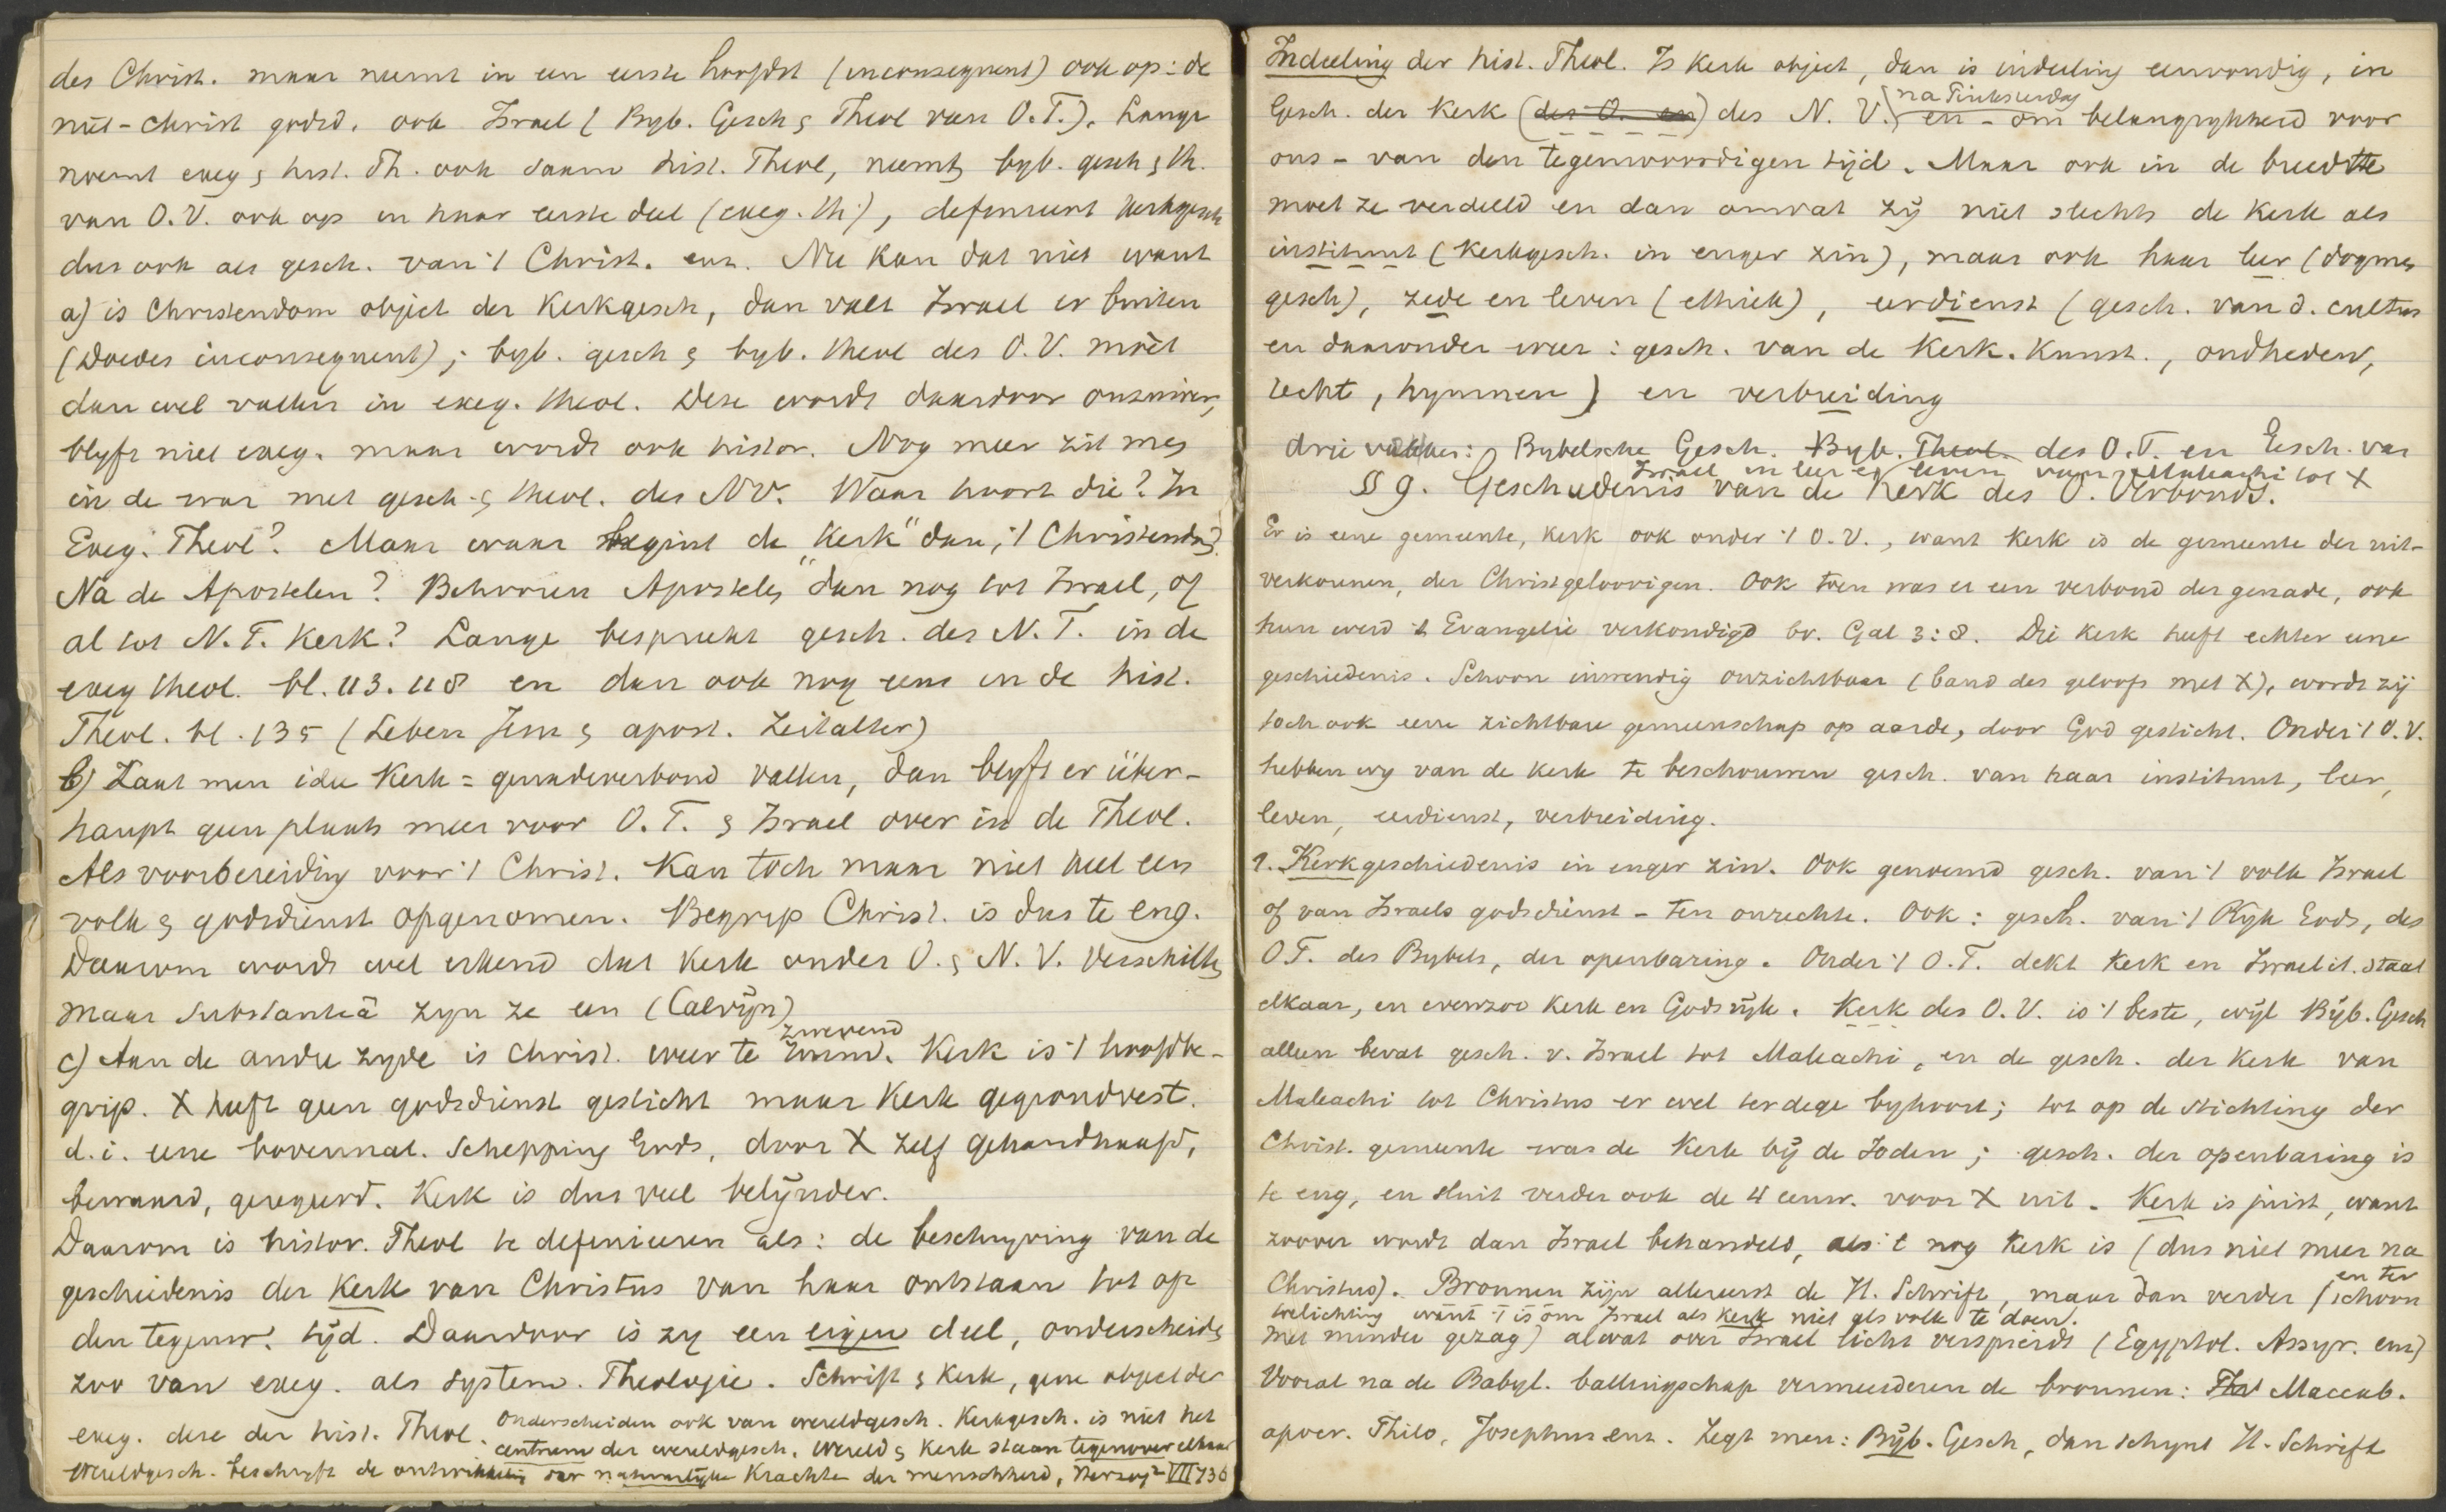 des Christ. maar neemt in een eerste hoofdst (inconsequent) ook op: de
niet-christ godsd. ook Israel (Byb. Gesch & Theol van O.T.). Lange
noemt exeg & hist. Th. ook saam hist. Theol, neemt byb. gesch & th.
van O.V. ook op in haar eerste deel (exeg. th.), definieert kerkgesch
dus ook als gesch. van 't Christ. enz. Nu kan dat niet want
a) is Christendom object der Kerkgesch, dan valt Israel er buiten
(Doedes inconsequent); byb. gesch & byb. theol des O.V. moet
dan wel vallen in exeg. theol. Deze wordt daardoor onzuiver,
blyft niet exeg. maar wordt ook histor. Nog meer zit men
in de war met gesch. & theol. des NV. Waar hoort die? In
Exeg. Theol? Maar waar begint de "Kerk" dan, 't Christendom?
Na de Apostelen? Behooren Apostelen dan nog tot Israel, of
al tot N.T. Kerk? Lange bespreekt gesch. des N.T. in de
exeg theol. bl. 113. 118 en dan ook nog eens in de hist.
Theol. bl. 135 (Leben Jesu & apost. Zeitalter)
b) Laat men idee Kerk = genadeverbond vallen, dan blyft er über-
haupt geen plaats meer voor O.T. & Israel over in de Theol.
Als voorbereiding voor 't Christ. kan toch maar niet heel een
volk & godsdienst opgenomen. Begrip Christ. is dus te eng.
Daarom wordt wel erkend dat Kerk onder O. & N.V. verschilt,
maar substantieä zyn ze een (Calvijn)
zwevend
c) Aan de andre zyde is Christ. weer te. Kerk is 't hoofdbe-
grip. X heeft geen godsdienst gesticht maar Kerk gegrondvest.
d.i. eene bovennat. Schepping Gods, door X zelf gehandhaafd,
bewaard, geregeerd. Kerk is dus veel belijnder.
Daarom is histor. Theol te definieeren als: de beschryving van de
geschiedenis der Kerk van Christus van haar ontstaan tot op
den tegenw. tijd. Daardoor is zy een eigen deel, onderscheiden
zoo van exeg. als system. Theologie. Schrift & Kerk, gene object der
exeg. deze der hist. Theol. Onderscheiden ook van wereldgesch. Kerkgesch. is niet het
centrum der wereldgesch. Wereld & Kerk staan tegenover elkaar
Wereldgesch. beschryft de ontwikkeling der natuurlijke krachten der menschheid, Herzog² VII 736
Indeeling der hist. Theol. Is Kerk object, dan is indeeling eenvoudig, in
na Pinksterdag
Gesch. der Kerk (des O. en) des N.V. en - om belangrykheid voor
ons - van den tegenwoordigen tijd. Maar ook in de breedte
moet ze verdeeld en dan omvat zij niet slechts de Kerk als
instituut (Kerkgesch. in enger zin), maar ook haar leer (dogmen
gesch), zede en leven (ethiek), eerdienst (gesch. van d. cultus
en daaronder weer: gesch. van de Kerk. Kunst., oudheden,
recht, hymnen) en verbreiding
drie vakken: Bybelsche Gesch. Byb. Theol. des O.T. en Gesch. van
Israel in leer en leven van Maleachi tot X
§ 9. Geschiedenis van de Kerk des O. Verbonds.
Er is eene gemeente, kerk ook onder 't O.V., want Kerk is de gemeente der uit-
verkorenen, der Christgeloovigen. Ook toen was er een verbond der genade, ook
hun werd 't Evangelie verkondigd bv. Gal 3:8. Die Kerk heeft echter eene
geschiedenis. Schoon inwendig onzichtbaar (band des geloofs met X), wordt zij
toch ook eene zichtbare gemeenschap op aarde, door God gesticht. Onder 't O.V.
hebben wy van de kerk te beschouwen gesch. van haar instituut, leer,
leven, eerdienst, verbreiding.
1. Kerkgeschiedenis in enger zin. Ook genoemd gesch. van 't volk Israel
of van Israels godsdienst - ten onrechte. Ook: gesch. van 't Ryk Gods, des
O.T. des Bybels, der openbaring. Onder 't O.T. dekt Kerk en Israelit. staat
elkaar, en evenzoo Kerk en Godsrijk. Kerk des O.V. is 't beste, wijl Bijb. Gesch
alleen bevat gesch. v. Israel tot Maleachi, en de gesch. der Kerk van
Maleachi tot Christus er wel terdege byhoort; tot op de stichting der
Christ. gemeente was de Kerk bij de Joden; gesch. der openbaring is
te eng, en sluit verder ook de 4 eeuw. voor X uit. Kerk is juist, want
zoover wordt dan Israel behandeld, als 't nog Kerk is (dus niet meer na
Christus). Bronnen zijn allereerst de H. Schrift, maar dan verder (schoon
en ter
toelichting want 't is om Israel als Kerk niet als volk te doen.
met minder gezag) al wat over Israel licht verspreidt (Egyptol. Assyr. enz)
Vooral na de Babyl. ballingschap vermeerderen de bronnen: Maccab.
apocr. Philo, Josephus enz. Zegt men: Bijb. Gesch, dan schynt H. Schrift